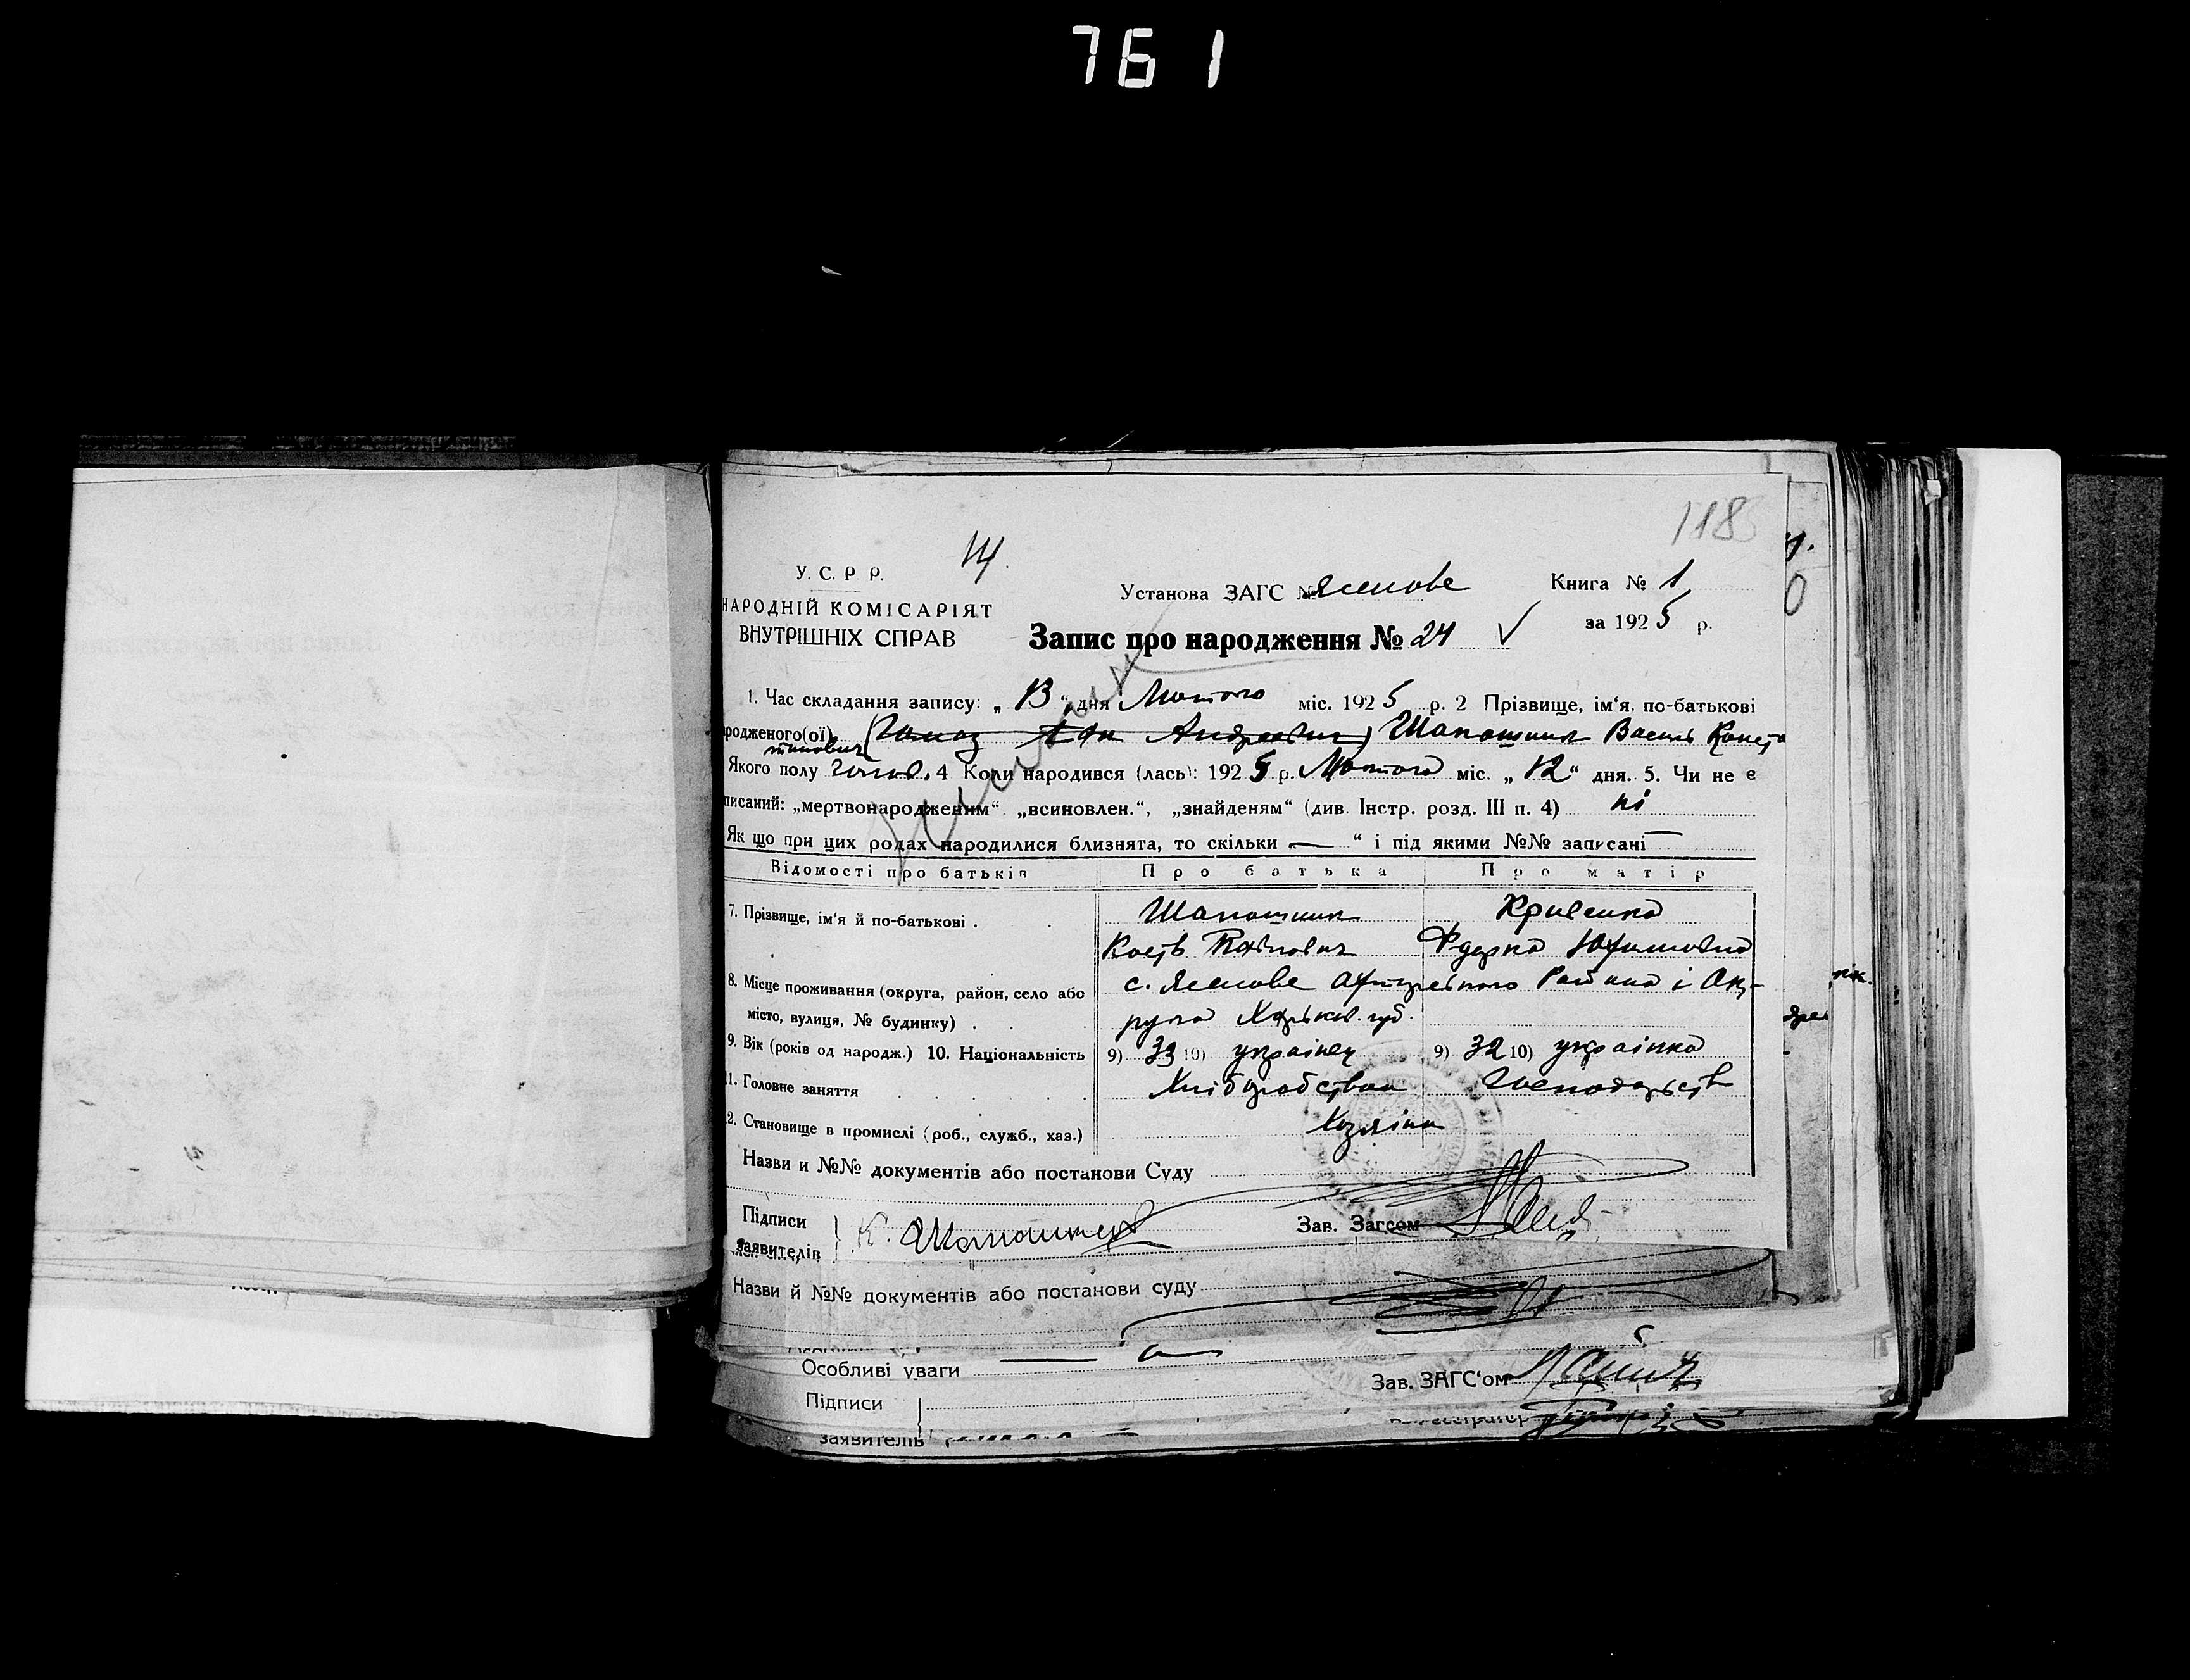 761
118
14.
У. С. Р Р.
НАРОДНІЙ КОМІСАРІЯТ
ВНУТРІШНІХ СПРАВ
Установа ЗАГС №
Книга № 1
за 1925 р.
Запис про народження № 24
1. Час складання запису: „13“ дня Лютого міс. 1925 р. 2 Прізвище, ім‘я, по-батькові
родженого(ої) Андреевич) Шапошник Василь Конста
тинович
Якого полу чолов. 4 Коли народився (лась): 1925 р. Лютого міс. „12“ дня. 5. Чи не є
писаний: „мертвонародженим“ „всиновлен.“, „знайденям“ (див. Інстр. розд. III п. 4) ні
Як що при цих родах народилися близнята, то скільки — “ і під якими №№ записані —
Відомості про батьків Про батька Про матір
7. Прізвище, ім‘я й по-батькові . Шапошник Кривенко
Кость Юхимовна
8. Місце проживання (округа, район, село або с. Району і Ок-
місто, вулиця, № будинку) . руга Харьков. губ.
9. Вік (років од народж.) 10. Національність 9) 33 10) українец 9) 32 10) українка
11. Головне заняття Хліборобство Господарств
12. Становище в промислі (роб., служб., хаз.) Хозяїн
Назви и №№ документів або постанови Суду
Підписи
заявителів К. Шапошник
Зав. Загсом
Назви й №№ документів або постанови суду
Особливі уваги
Зав. ЗАГС‘ом
Підписи
заявителів